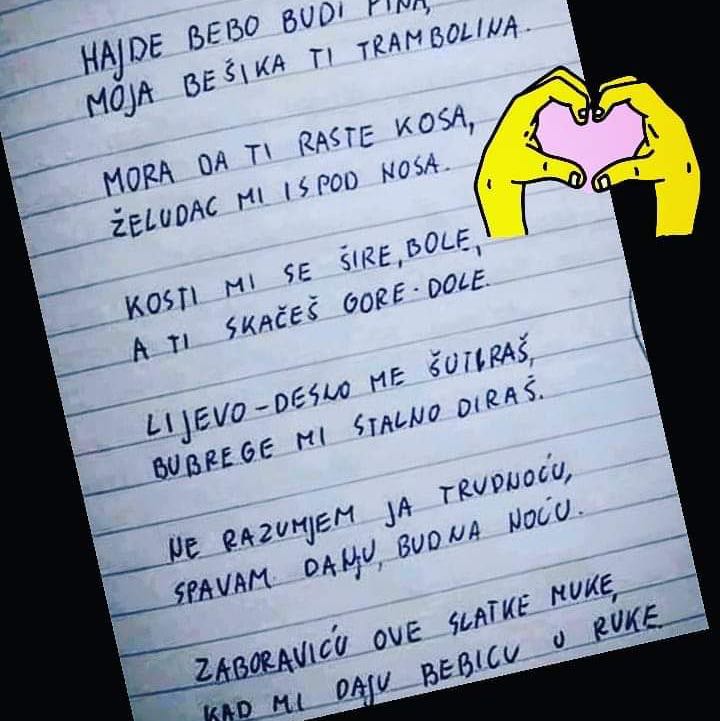 HAJDE BEBO BUDI FINA,
MOJA BEŠIKA TI TRAMBOLINA.
MORA DA TI RASTE KOSA,
ŽELUDAC MI ISPOD NOSA.
KOSTI MI SE ŠIRE, BOLE,
A TI SKAČEŠ GORE-DOLE.
LIJEVO-DESNO ME ŠUTIRAŠ,
BUBREGE MI STALNO DIRAŠ.
NE RAZUMJEM JA TRUDNOĆU,
SPAVAM DANJU, BUDNA NOĆU.
ZABORAVIĆU OVE SLATKE MUKE,
KAD MI DAJU BEBICU U RUKE